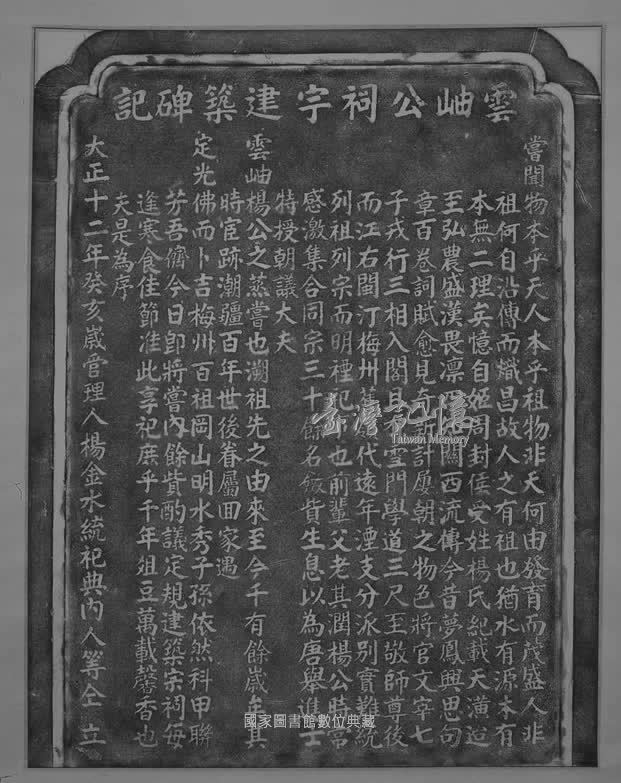 雲岫公祠宇建築碑記
嘗聞物本乎天人本乎祖物非天何由發育而茂盛人非
祖何自沿傳而熾昌故人之有祖也猶水有源本有
本無二理矣憶自姬周封侯受姓楊氏紀載天潢迨
至弘農盛漢畏凛 關西流傳今昔夢鳳興思句
章百卷詞賦愈見奇新計屢朝之物色將官文宰七
子戎行三相入閣且 雪門學道三尺至敬師尊後
而江右閩汀梅州舊 代遠年湮支分派別實難統
列祖列宗而明禋祀 也前輩父老其潤楊公時常
感激集合同宗三十餘名飯貲生息以為唐舉進士
特授朝議大夫
雲岫楊公之蒸嘗也溯祖先之由來至今千有餘歲矣其
時宦跡潮疆百年世後眷屬田家遇
定光佛而卜吉梅州百祖岡山明水秀子孫依然科甲聯
芳吾儕今日即將嘗內餘貲酌議定規建築宗祠每
逢寒食佳節准此享祀庶乎千年俎豆萬載馨香也
夫是為序
大正十二年癸亥歲管理人楊金水統祀典內人等仝立
臺灣記憶
Taiwan Memory
國家圖書館數位典藏